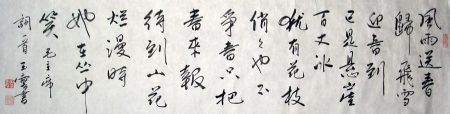 風雨送春
歸 飛雪
迎春到
已是悬崖
百丈冰
犹有花枝
俏々也不
爭春只把
春來報
待到山花
烂漫時
她在丛中
笑 毛主席
詞一首 玉雲書